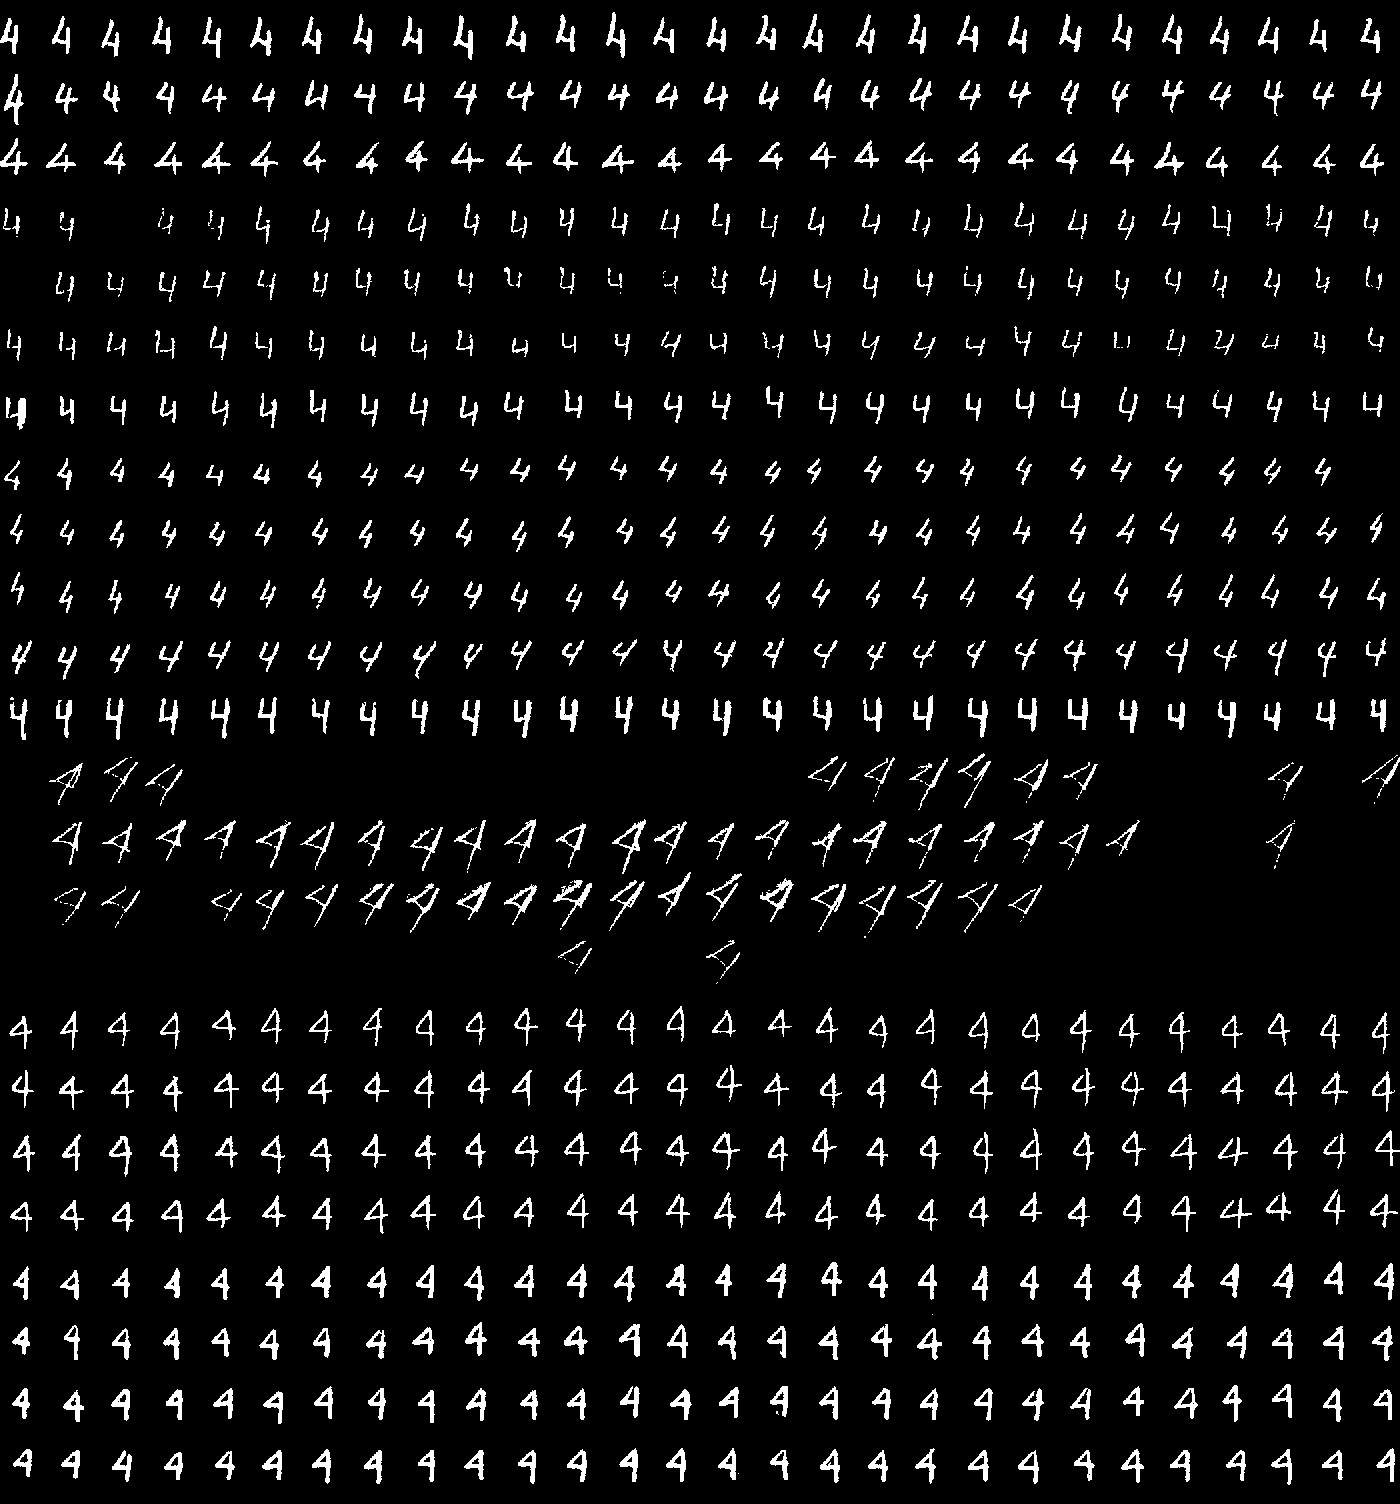 4 4 4 4 4 4 4 4 4 4 4 4 4 4 4 4 4 4 4 4 4 4 4 4 4 4 4 4
4 4 4 4 4 4 4 4 4 4 4 4 4 4 4 4 4 4 4 4 4 4 4 4 4 4 4 4
4 4 4 4 4 4 4 4 4 4 4 4 4 4 4 4 4 4 4 4 4 4 4 4 4 4 4 4
4 4 4 4 4 4 4 4 4 4 4 4 4 4 4 4 4 4 4 4 4 4 4 4 4 4 4
4 4 4 4 4 4 4 4 4 4 4 4 4 4 4 4 4 4 4 4 4 4 4 4 4 4 4
4 4 4 4 4 4 4 4 4 4 4 4 4 4 4 4 4 4 4 4 4 4 4 4 4 4 4 4
4 4 4 4 4 4 4 4 4 4 4 4 4 4 4 4 4 4 4 4 4 4 4 4 4 4 4 4
4 4 4 4 4 4 4 4 4 4 4 4 4 4 4 4 4 4 4 4 4 4 4 4 4 4 4
4 4 4 4 4 4 4 4 4 4 4 4 4 4 4 4 4 4 4 4 4 4 4 4 4 4 4 4
4 4 4 4 4 4 4 4 4 4 4 4 4 4 4 4 4 4 4 4 4 4 4 4 4 4 4 4
4 4 4 4 4 4 4 4 4 4 4 4 4 4 4 4 4 4 4 4 4 4 4 4 4 4 4 4
4 4 4 4 4 4 4 4 4 4 4 4 4 4 4 4 4 4 4 4 4 4 4 4 4 4 4 4
4 4 4 4 4 4 4 4 4 4 4
4 4 4 4 4 4 4 4 4 4 4 4 4 4 4 4 4 4 4 4 4 4 4
4 4 4 4 4 4 4 4 4 4 4 4 4 4 4 4 4 4 4
4 4
4 4 4 4 4 4 4 4 4 4 4 4 4 4 4 4 4 4 4 4 4 4 4 4 4 4 4 4
4 4 4 4 4 4 4 4 4 4 4 4 4 4 4 4 4 4 4 4 4 4 4 4 4 4 4 4
4 4 4 4 4 4 4 4 4 4 4 4 4 4 4 4 4 4 4 4 4 4 4 4 4 4 4 4
4 4 4 4 4 4 4 4 4 4 4 4 4 4 4 4 4 4 4 4 4 4 4 4 4 4 4 4
4 4 4 4 4 4 4 4 4 4 4 4 4 4 4 4 4 4 4 4 4 4 4 4 4 4 4 4
4 4 4 4 4 4 4 4 4 4 4 4 4 4 4 4 4 4 4 4 4 4 4 4 4 4 4 4
4 4 4 4 4 4 4 4 4 4 4 4 4 4 4 4 4 4 4 4 4 4 4 4 4 4 4 4
4 4 4 4 4 4 4 4 4 4 4 4 4 4 4 4 4 4 4 4 4 4 4 4 4 4 4 4